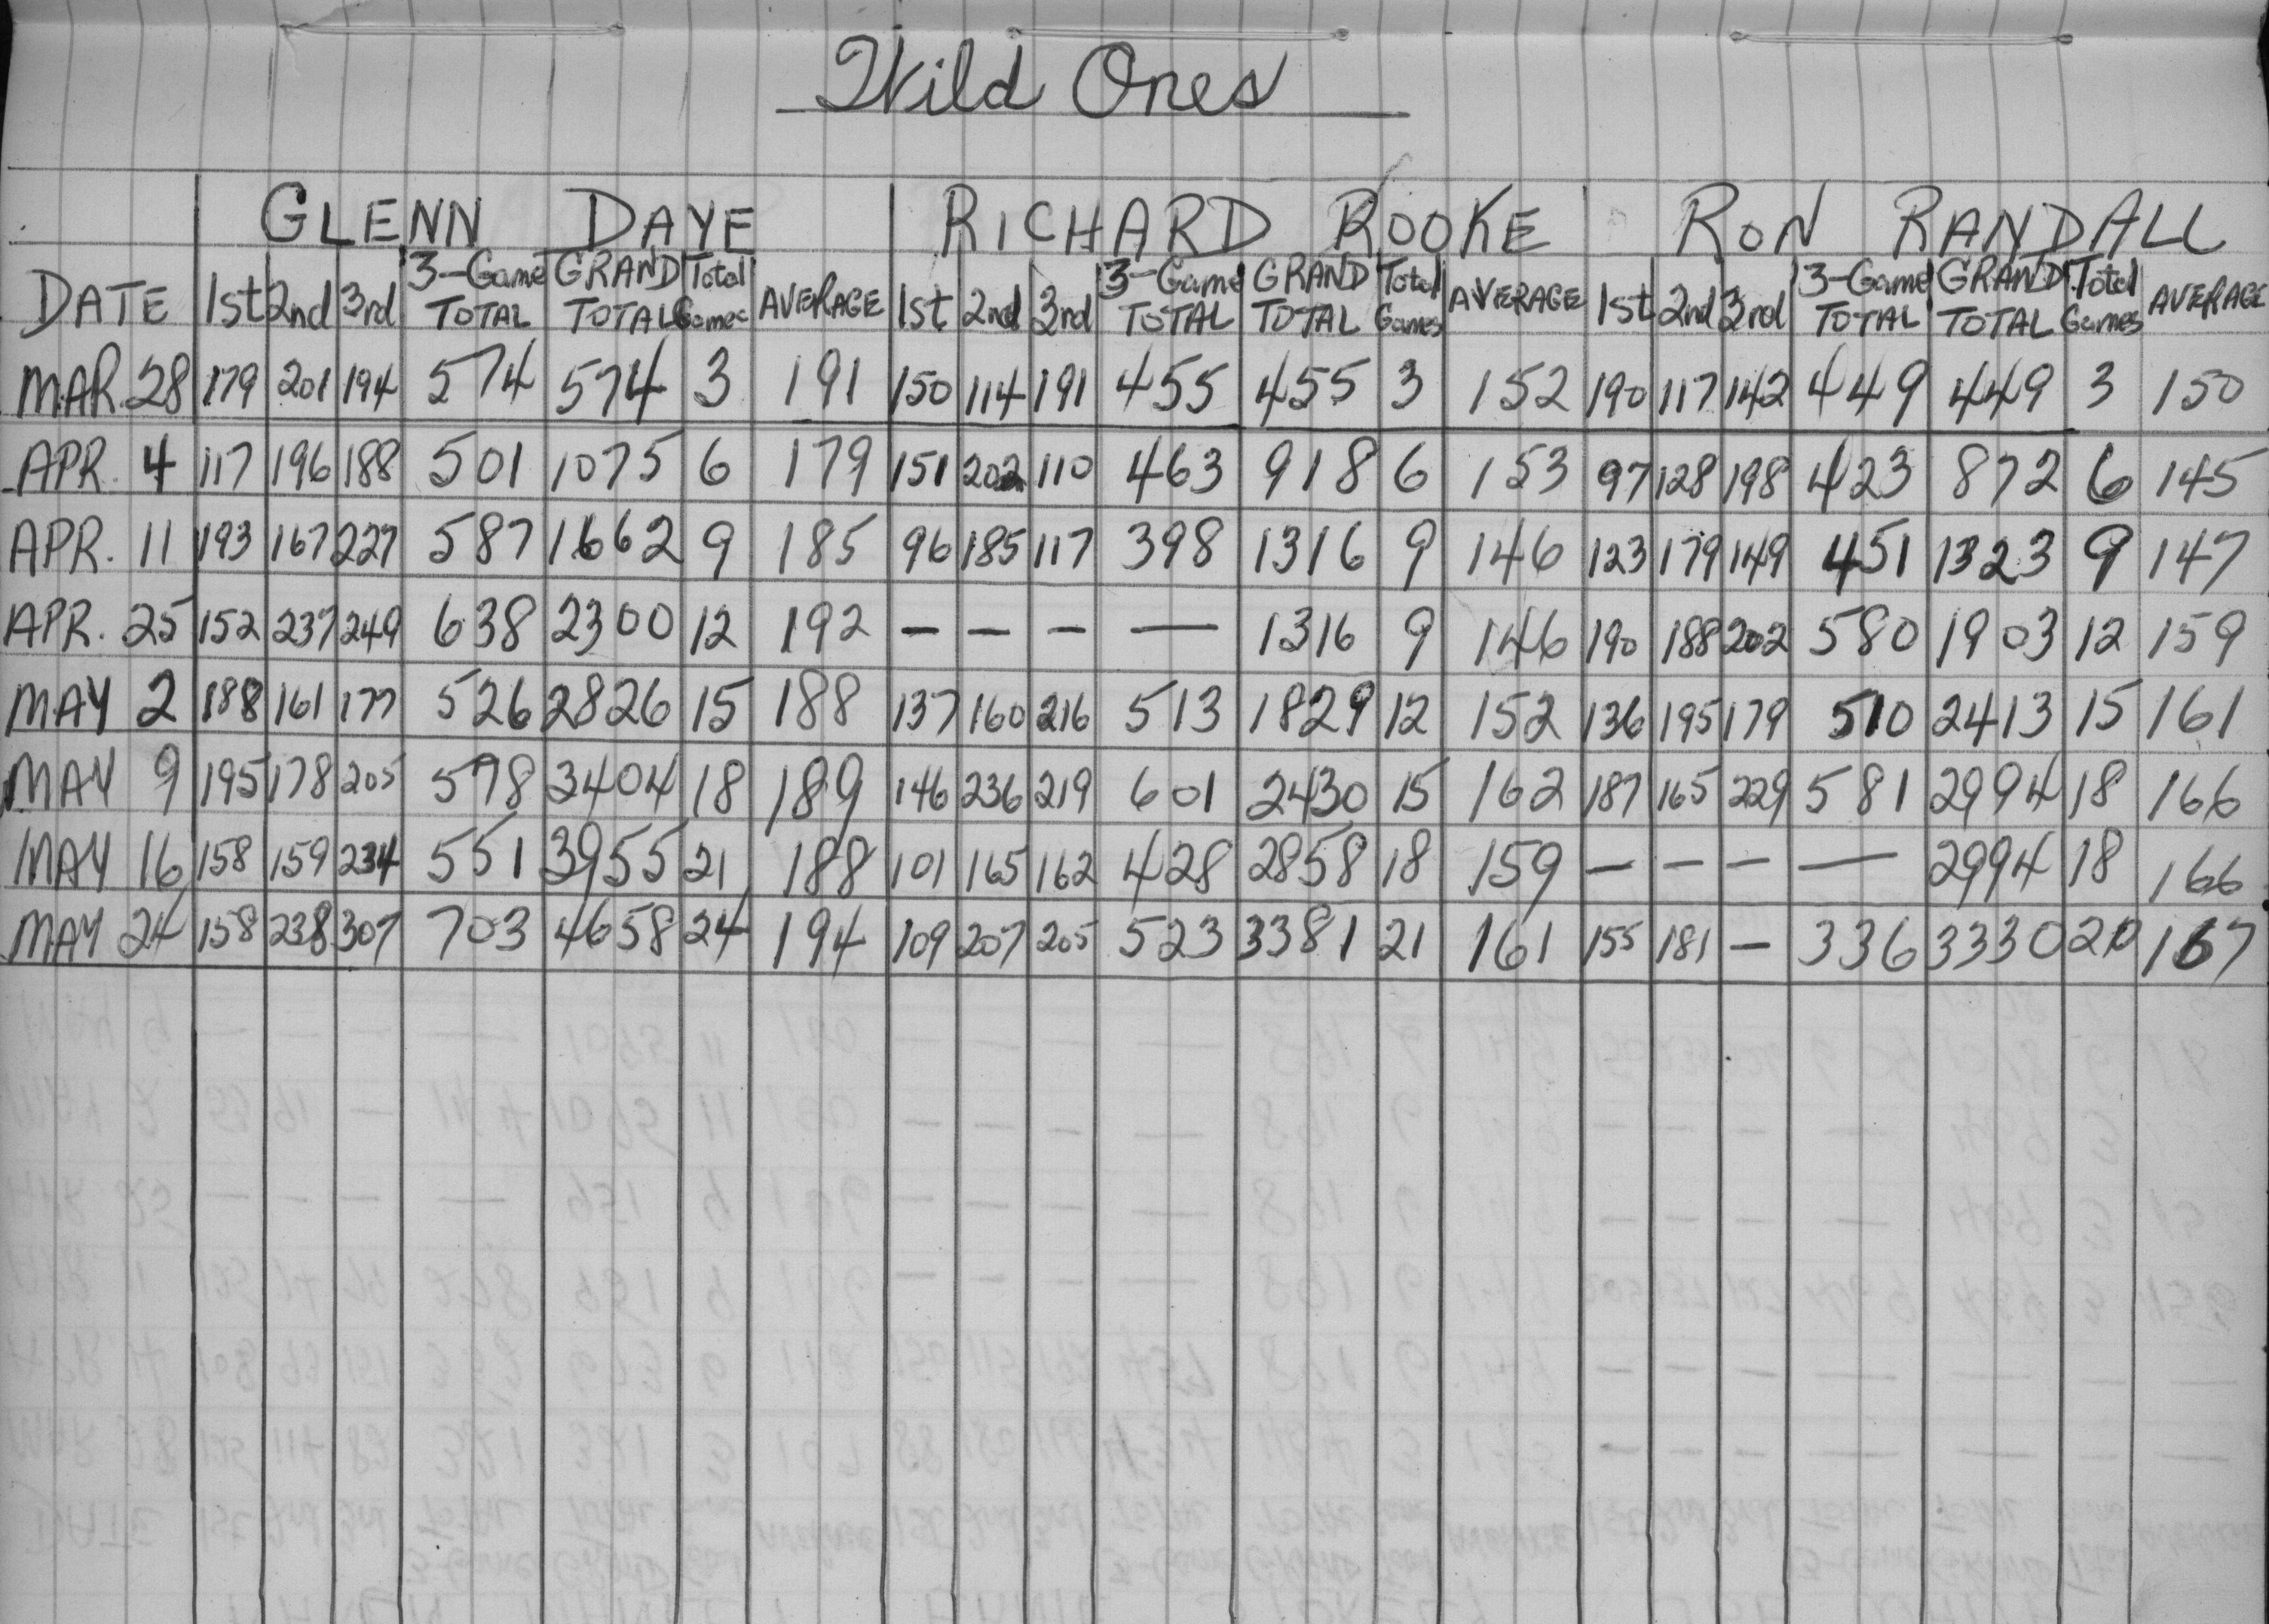 Wild Ones
GLENN DAYE RICHARD ROOKE RON RANDALL
DATE 1st 2nd 3rd 3-Game TOTAL GRAND TOTAL Total Games AVERAGE 1st 2nd 3rd 3-Game TOTAL GRAND TOTAL Total Games AVERAGE 1st 2nd 3rd 3-Game TOTAL GRAND TOTAL Total Games AVERAGE
MAR. 28 179 201 194 574 574 3 191 150 114 191 455 455 3 152 190 117 142 449 449 3 150
APR. 4 117 196 188 501 1075 6 179 151 202 110 463 918 6 153 97 128 198 423 872 6 145
APR. 11 193 167 227 587 1662 9 185 96 185 117 398 1316 9 146 123 179 149 451 1323 9 147
APR. 25 152 237 249 638 2300 12 192 - - - — 1316 9 146 190 188 202 580 1903 12 159
MAY 2 188 161 177 526 2826 15 188 137 160 216 513 1829 12 152 136 195 179 510 2413 15 161
MAY 9 195 178 205 578 3404 18 189 146 236 219 601 2430 15 162 187 165 229 581 2994 18 166
MAY 16 158 159 234 551 3955 21 188 101 165 162 428 2858 18 159 - - - — 2994 18 166
MAY 24 158 238 307 703 4658 24 194 109 207 205 523 3381 21 161 155 181 - 336 3330 20 167